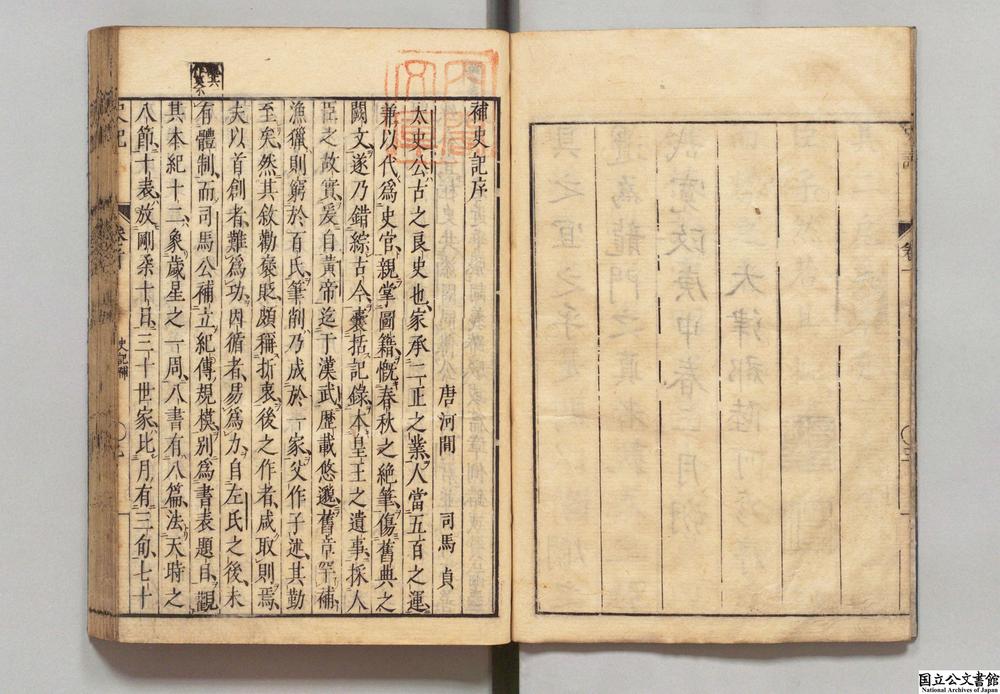 補史記序
唐河間　司馬貞
太史公古之良史也家承二正之業人當五百之運
兼以代爲史官親掌圖籍慨春秋之絶筆傷舊典之
闕文遂乃錯綜古今囊括記錄本皇王之遺事採人
臣之故實爰自黃帝迄于漢武歷載悠邈舊章罕補
漁獵則窮於百氏筆削乃成於一家父作子述其勤
至矣然其敘勸褒貶頗稱折衷後之作者咸取則焉
夫以首創者難爲功因循者易爲力自左氏之後未
有體制而司馬公補立紀傳規模別爲書表題目觀
其本紀十二象歲星之一周八書有八篇法天時之
八節十表放剛柔十日三十世家比月有三旬七十
史記
史記補
国立公文書館
National Archives of Japan